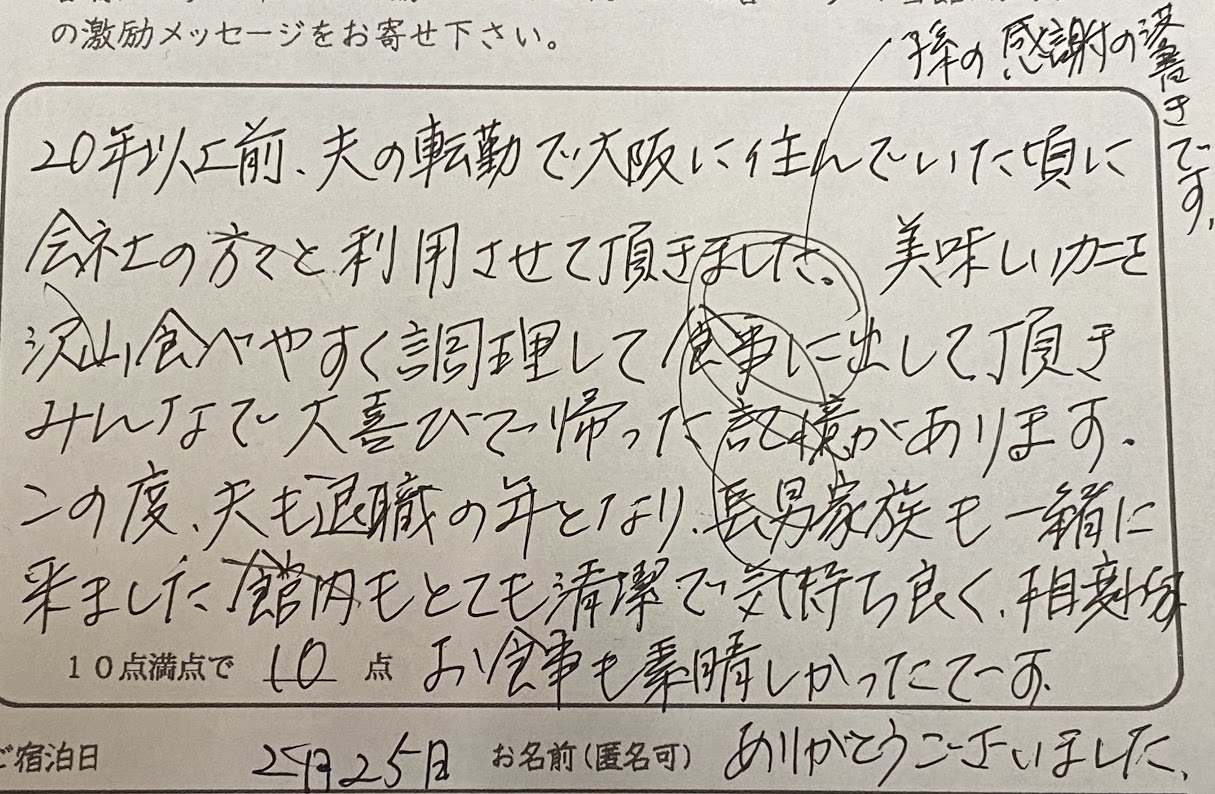 の激励メッセージをお寄せ下さい。
孫の感謝の落書きです。
20年以上前、夫の転勤で大阪に住んでいた頃に
会社の方々と利用させて頂きました。美味しいカニを
沢山食べやすく調理して食事に出して頂き
みんなで大喜びで帰った記憶があります.
この度、夫も退職の年となり、長男家族も一緒に
来ました 館内もとても清潔で気持ち良く、相変わらず
10点満点で 10 点 お食事も素晴しかったです.
ご宿泊日 2月25日 お名前(匿名可) ありがとうございました.